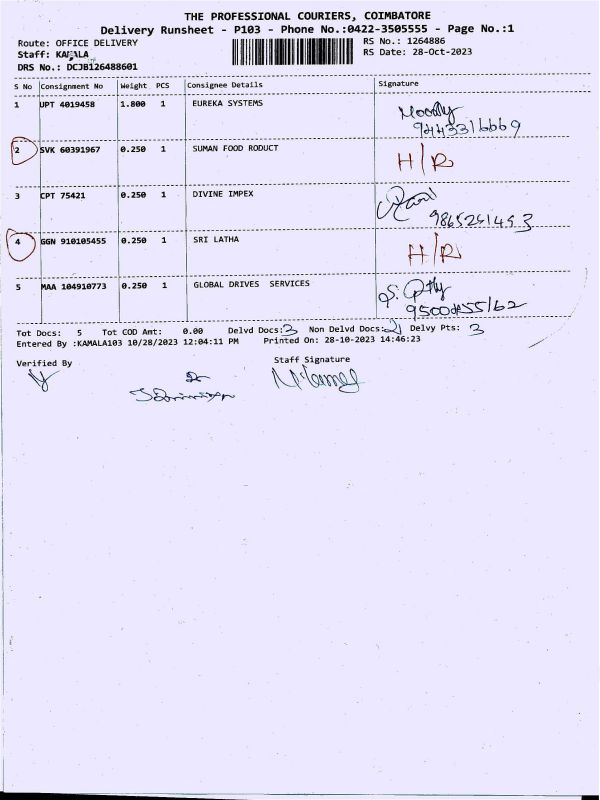 THE PROFESSIONAL COURIERS, COIMBATORE
Delivery Runsheet - P103 - Phone No.:0422-3505555 - Page No.:1
Route: OFFICE DELIVERY RS No.: 1264886
Staff: KAMALA RS Date: 28-Oct-2023
DRS No.: DCJB126488601
S No Consignment No Weight PCS Consignee Details Signature
1 UPT 4019458 1.800 1 EUREKA SYSTEMS
9443316669
2 SVK 60391967 0.250 1 SUMAN FOOD RODUCT H/R
3 CPT 75421 0.250 1 DIVINE IMPEX
4 GGN 910105455 0.250 1 SRI LATHA H/R
5 MAA 104910773 0.250 1 GLOBAL DRIVES SERVICES
Tot Docs: 5 Tot COD Amt: 0.00 Delvd Docs: 3 Non Delvd Docs: 2 Delvy Pts: 3
Entered By :KAMALA103 10/28/2023 12:04:11 PM Printed On: 28-10-2023 14:46:23
Verified By Staff Signature